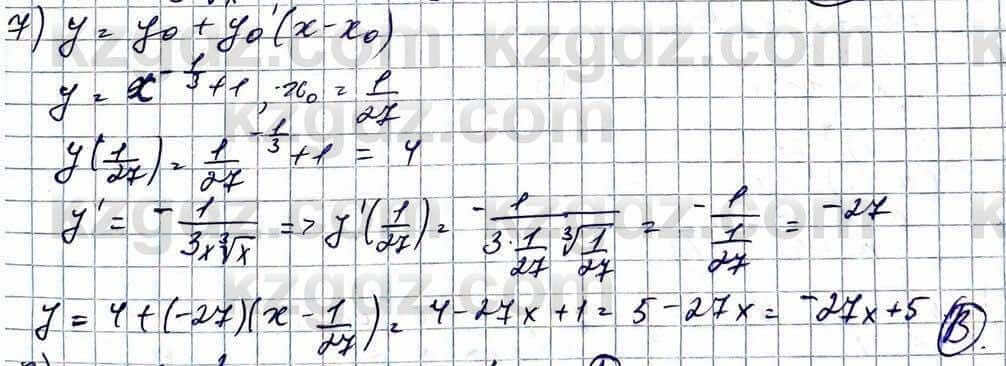 7) y = y₀ + y₀'(x - x₀)
y = x^(-1/3) + 1, x₀ = 1/27
y(1/27) = 1/27^(-1/3) + 1 = 4
y' = -1/(3x∛x) => y'(1/27) = -1/(3·1/27 ∛(1/27)) = -1/(1/27) = -27
y = 4 + (-27)(x - 1/27) = 4 - 27x + 1 = 5 - 27x = -27x + 5 B.
kzgdz.com